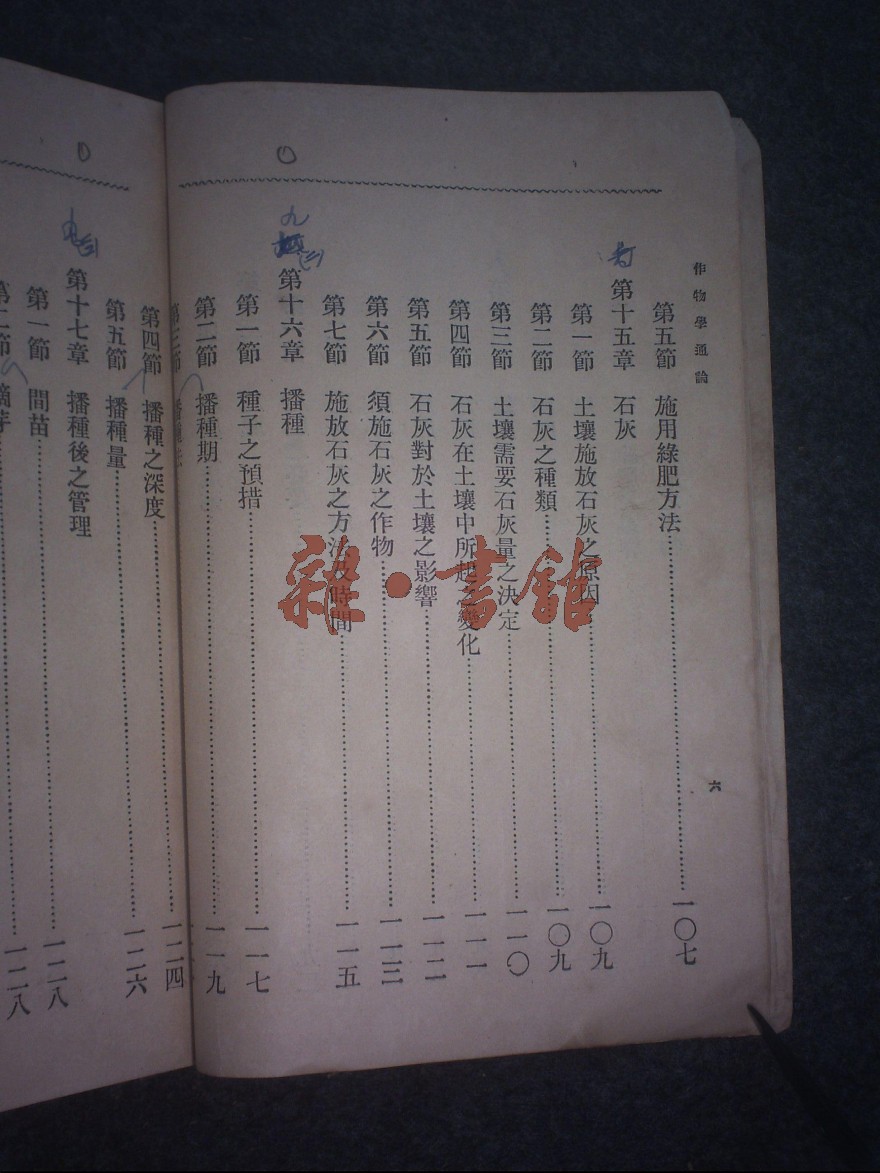 作物學通論
六
第五節 施用綠肥方法……一〇七
第十五章 石灰
第一節 土壤施放石灰之原因……一〇九
第二節 石灰之種類……一〇九
第三節 土壤需要石灰量之決定……一一〇
第四節 石灰在土壤中所起之變化……一一一
第五節 石灰對於土壤之影響……一一二
第六節 須施石灰之作物……一一三
第七節 施放石灰之方法及時間……一一五
九
第十六章 播種
第一節 種子之預措……一一七
第二節 播種期……一一九
第三節 播種法
第四節 播種之深度……一二四
第五節 播種量……一二六
第十七章 播種後之管理
第一節 間苗……一二八
第二節 摘芽……一二八
雜·書館